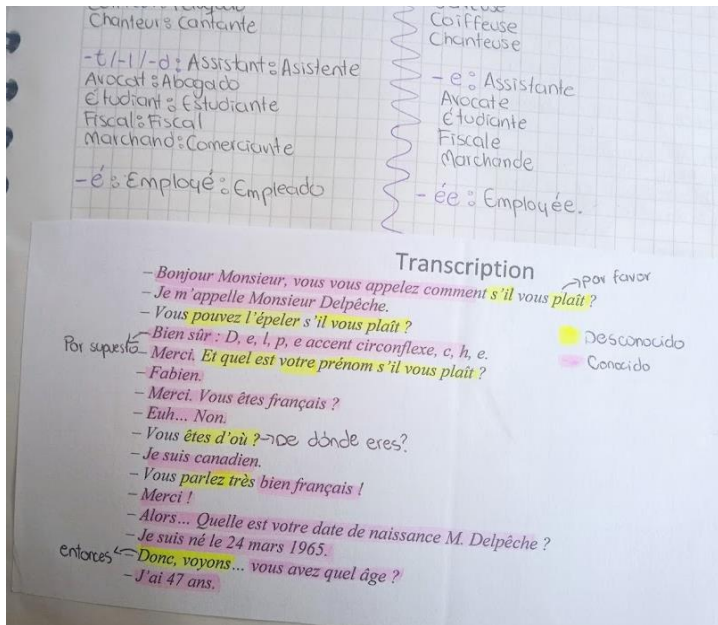 Chanteur: Cantante
-t/-l/-d: Assistant: Asistente
Avocat: Abogado
Étudiant: Estudiante
Fiscal: Fiscal
Marchand: Comerciante
-é: Employé: Empleado
Coiffeuse
Chanteuse
-e: Assistante
Avocate
Étudiante
Fiscale
Marchande
-ée: Employée.
Transcription
por favor
– Bonjour Monsieur, vous vous appelez comment s'il vous plaît ?
– Je m'appelle Monsieur Delpêche.
– Vous pouvez l'épeler s'il vous plaît ?
Desconocido
Por supuesto
– Bien sûr : D, e, l, p, e accent circonflexe, c, h, e.
Conocido
– Merci. Et quel est votre prénom s'il vous plaît ?
– Fabien.
– Merci. Vous êtes français ?
– Euh... Non.
– Vous êtes d'où ? → De dónde eres?
– Je suis canadien.
– Vous parlez très bien français !
– Merci !
– Alors... Quelle est votre date de naissance M. Delpêche ?
– Je suis né le 24 mars 1965.
entonces
– Donc, voyons... vous avez quel âge ?
– J'ai 47 ans.